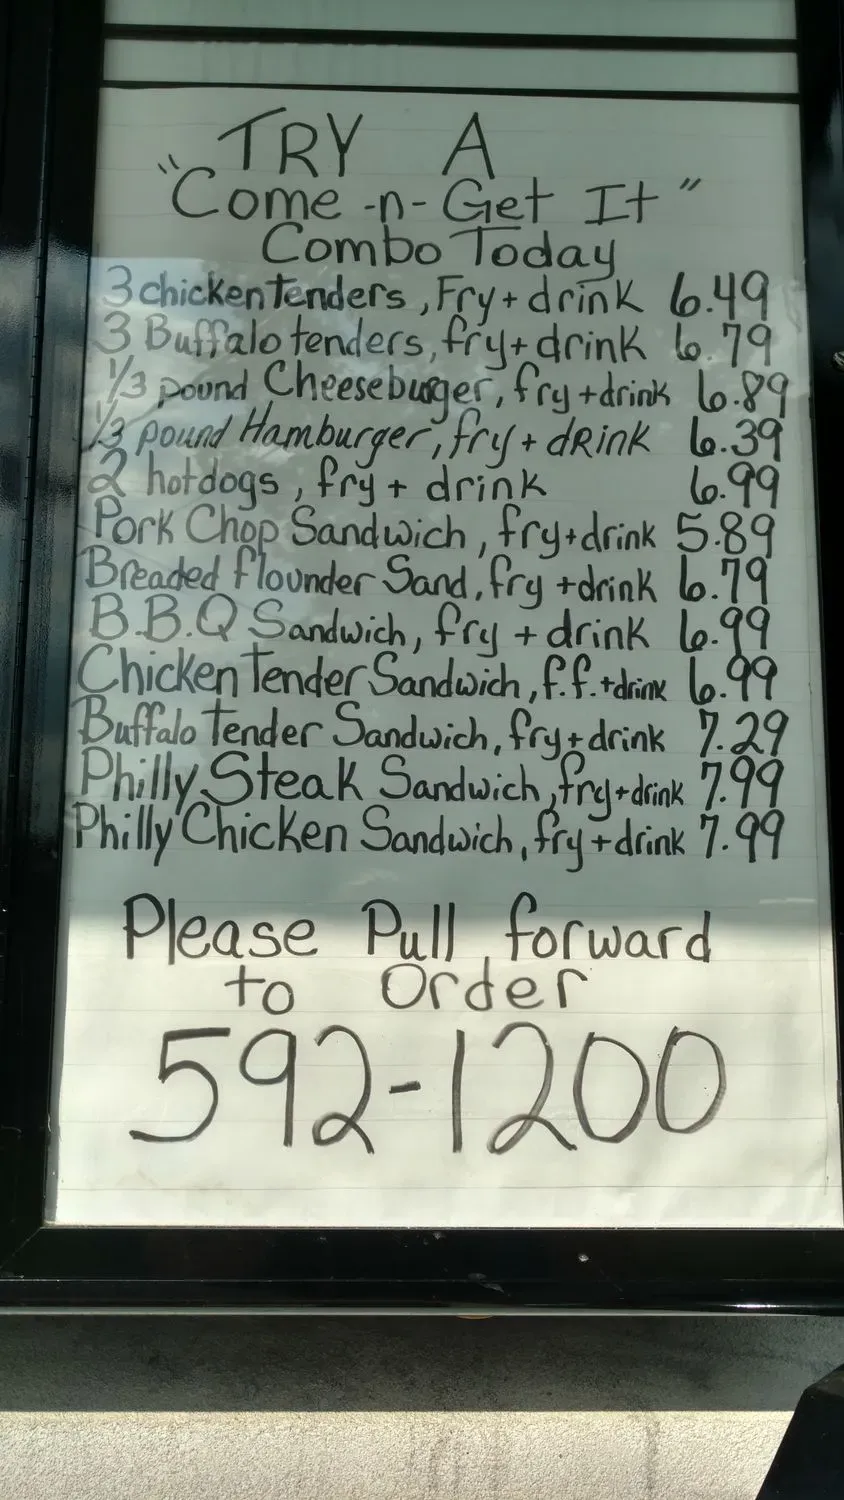 TRY A
"Come -n- Get It"
Combo Today
3 chicken tenders, Fry + drink 6.49
3 Buffalo tenders, fry + drink 6.79
1/3 pound Cheeseburger, fry + drink 6.89
1/3 pound Hamburger, fry + dRink 6.39
2 hotdogs, fry + drink 6.99
Pork Chop Sandwich, fry + drink 5.89
Breaded flounder Sand, fry + drink 6.79
B.B.Q Sandwich, fry + drink 6.99
Chicken Tender Sandwich, f.f. + drink 6.99
Buffalo Tender Sandwich, fry + drink 7.29
Philly Steak Sandwich, fry + drink 7.99
Philly Chicken Sandwich, fry + drink 7.99
Please Pull forward
to Order
592-1200